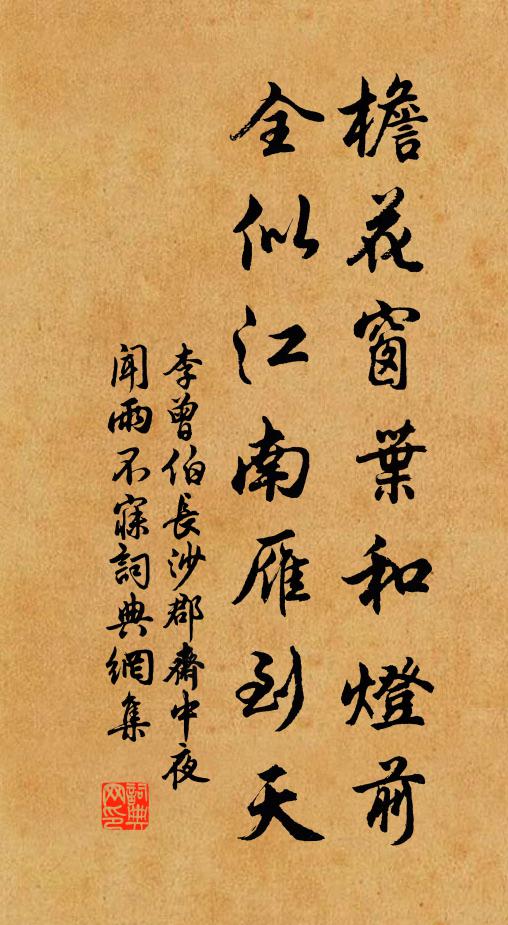 檐花窗葉和燈前
全似江南雁到天
李曾伯長沙郡齋中夜
聞雨不寐詞典網集
詞典
网印